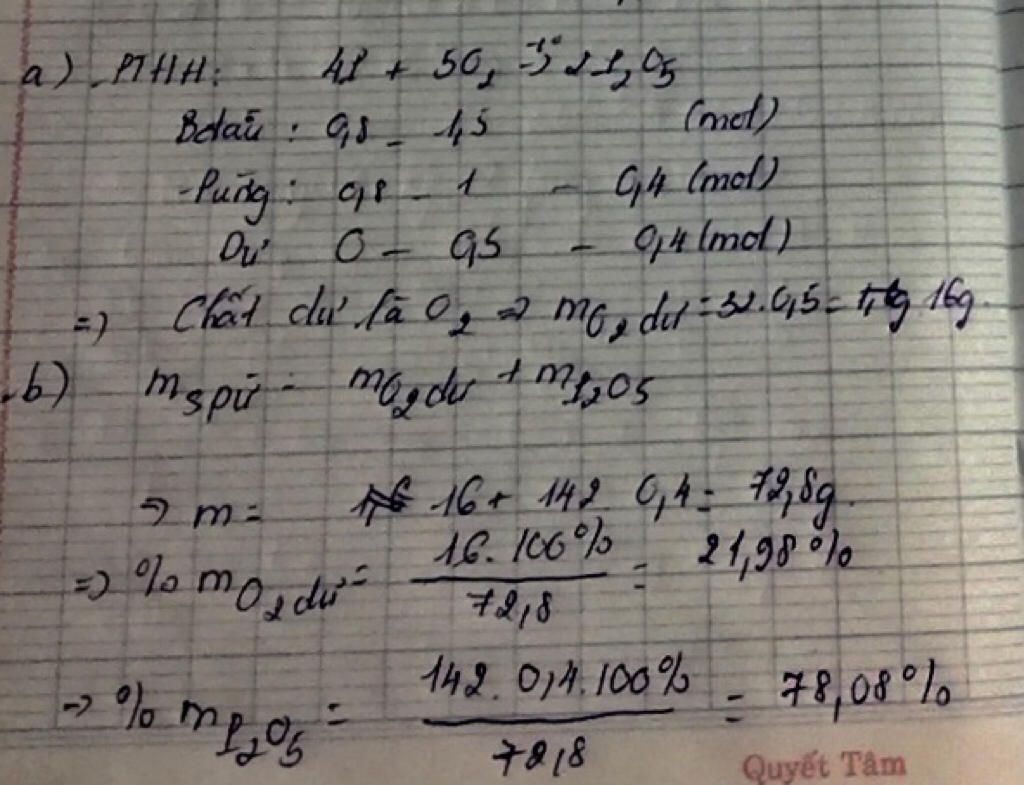 a) PTHH: 4P + 5O₂ -t°-> 2P₂O₅
Bđầu: 0,8 - 1,5 (mol)
-Pứng: 0,8 - 1 - 0,4 (mol)
Dư 0 - 0,5 - 0,4 (mol)
=> Chất dư là O₂ => mO₂ dư = 32.0,5 = 16g.
b) mspứ = mO₂dư + mP₂O₅
-> m = 16 + 142 0,4 = 72,8g.
=> % mO₂dư = 16.100%/72,8 = 21,98%
-> % mP₂O₅ = 142.0,4.100%/72,8 = 78,08%
Quyết Tâm